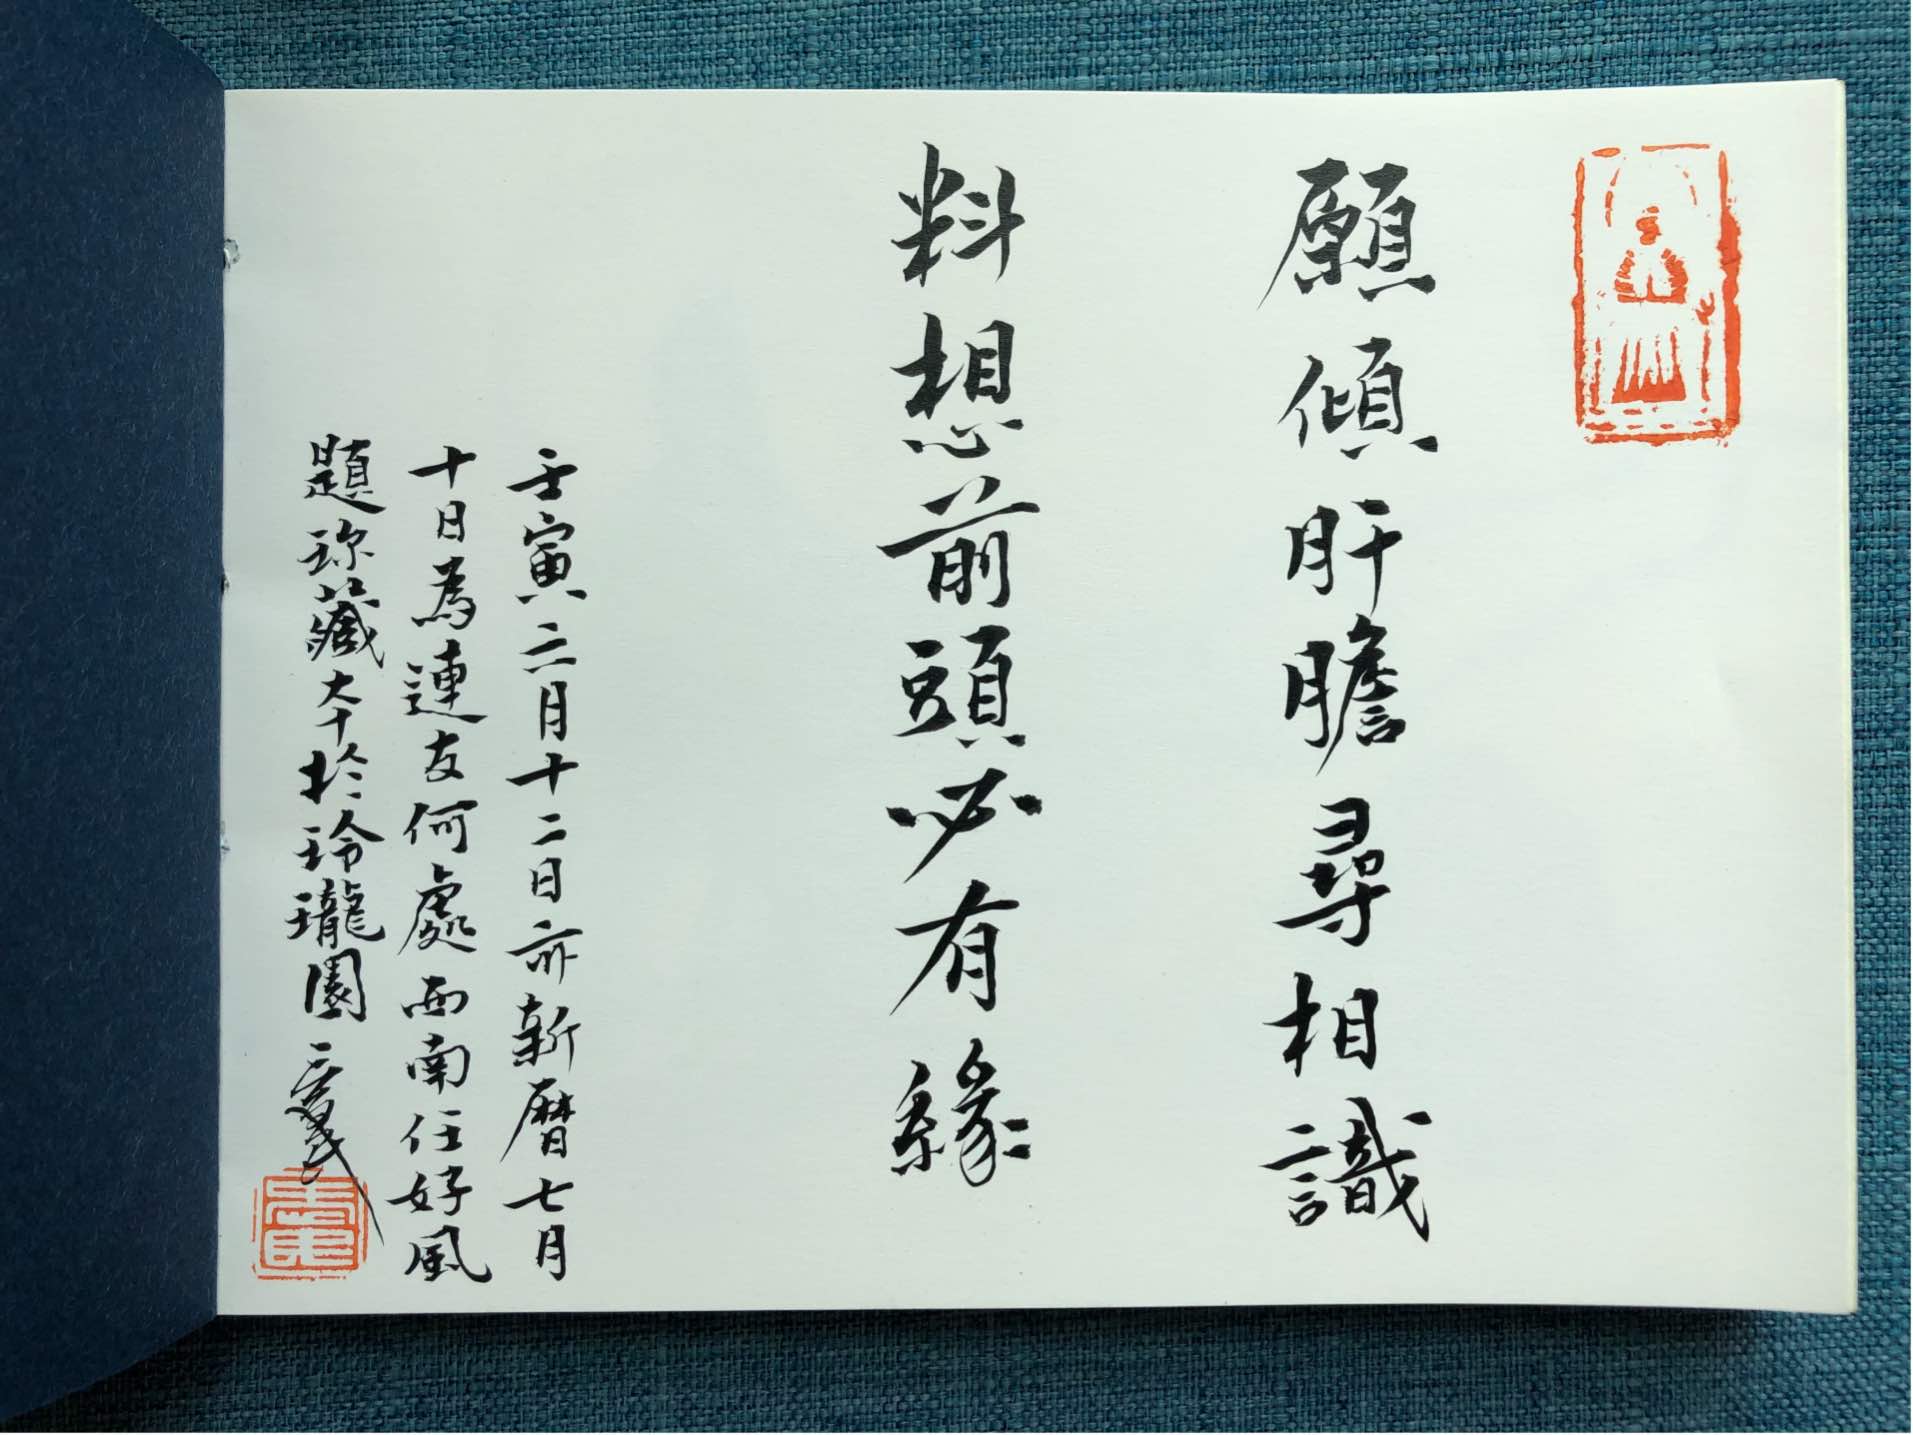 願傾肝膽尋相識
料想前頭必有緣
壬寅六月十二日亦新曆七月
十日為蓮友何處西南任好風
題珍藏本於玲瓏園